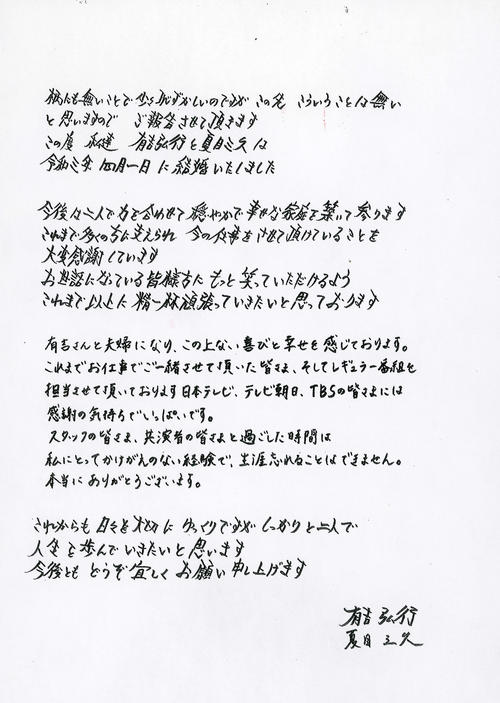 柄にも無いことで少々恥ずかしいのですが この先 こういうことは無い
と思いますので ご報告させて頂きます
この度 私達 有吉弘行と夏目三久は
令和三年 四月一日 に結婚いたしました
今後々二人で力を合わせて 穏やかで幸せな家庭を築いて参ります
これまで多くの方に支えられ 今の仕事をさせて頂けていることを
大変感謝しています
お世話になっている皆様方に もっと笑っていただけるよう
これまで以上に精一杯頑張っていきたいと思っております
有吉さんと夫婦になり、この上ない喜びと幸せを感じております。
これまでお仕事でご一緒させて頂いた皆さま、そしてレギュラー番組を
担当させて頂いております日本テレビ、テレビ朝日、TBSの皆さまには
感謝の気持ちでいっぱいです。
スタッフの皆さま、共演者の皆さまと過ごした時間は
私にとってかけがえのない経験で、生涯忘れることはできません。
本当にありがとうございます。
これからも 日々を大切に ゆっくりですが しっかりと二人で
人生を歩んでいきたいと思います
今後とも どうぞ宜しく お願い申し上げます
有吉 弘行
夏目 三久